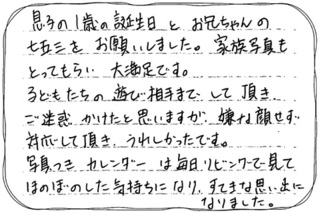 息子の1歳の誕生日と お兄ちゃんの
七五三を お願いしました。家族写真も
とってもらい 大満足です。
子どもたちの 遊び相手まで して頂き
ご迷惑 かけたと思いますが、嫌な顔せず
対応して頂き、うれしかったです。
写真つき カレンダーは毎日リビングで見て
ほのぼのした気持ちになり、すてきな思い出に
なりました。